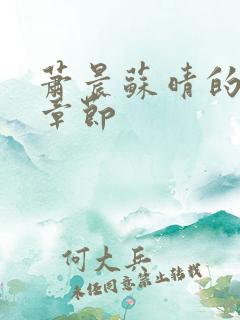 萧晨蘇晴的
章節
何大兵
未经同意禁止转载